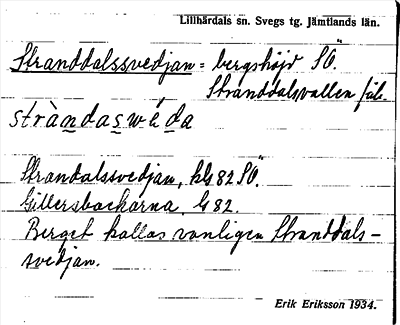 Lillhärdals sn. Svegs tg. Jämtlands län.
Stranddalssvedjan = bergshöjd SÖ.
Stranddalsvallen fäb.
stràndaswéda
Strandalssvedjan, kG 82 SÖ.
Gillersbackarna G 82.
Berget kallas vanligen Stranddals-
svedjan.
Erik Eriksson 1934.